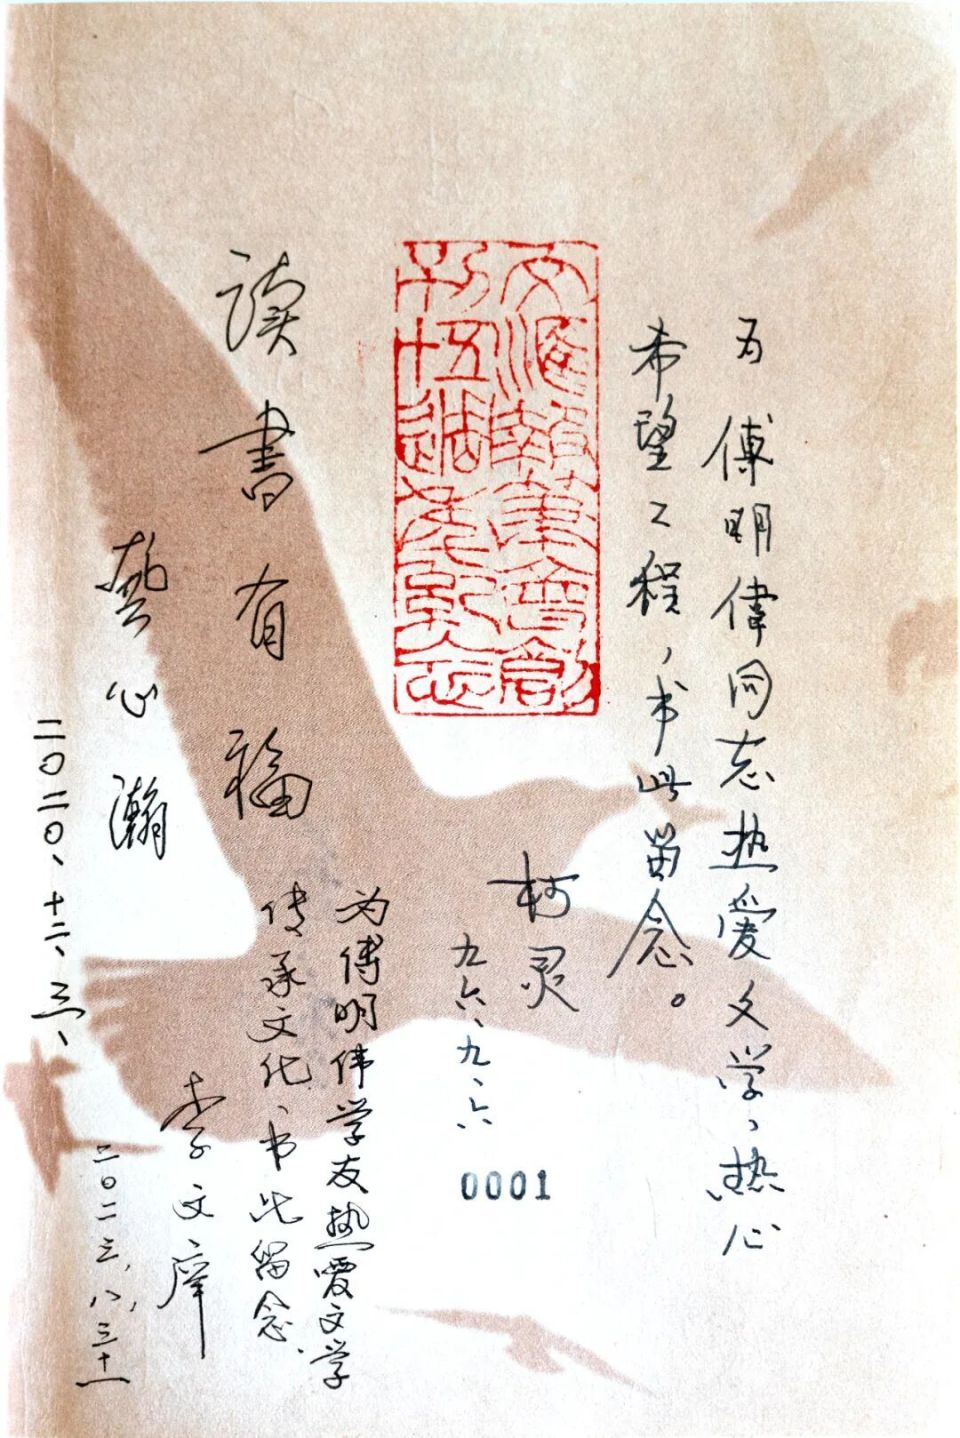 为傅明偉同志热爱文学、热心
希望工程，书此留念。
柯灵
九六、九、六
0001
文滙報筆會創
刊五十週年紀念
读書有福
藝心瀚
二〇二〇、十二、三、
为傅明伟学友热爱文学
传承文化、书此留念、
李文
二〇二三，八，三十一